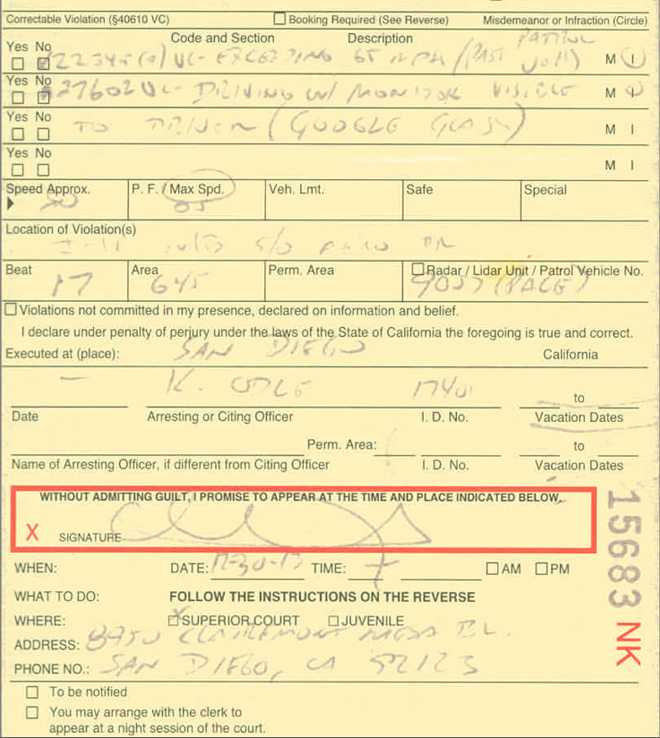 Correctable Violation (§40610 VC) Booking Required (See Reverse) Misdemeanor or Infraction (Circle)
Yes No Code and Section Description PATROL
22349(a) VC- EXCEEDING 65 MPH (PAST M I
Yes No
27602 VC- DRIVING W/ MONITOR VISIBLE M I
Yes No
TO DRIVER (GOOGLE GLASS) M I
Yes No
M I
Speed Approx. P. F. / Max Spd. Veh. Lmt. Safe Special
65
Location of Violation(s)
S/O
Beat Area Perm. Area Radar / Lidar Unit / Patrol Vehicle No.
17 645 (PACE)
Violations not committed in my presence, declared on information and belief.
I declare under penalty of perjury under the laws of the State of California the foregoing is true and correct.
Executed at (place): SAN DIEGO California
— K. ODLE to
Date Arresting or Citing Officer I. D. No. Vacation Dates
Perm. Area: to
Name of Arresting Officer, if different from Citing Officer I. D. No. Vacation Dates
WITHOUT ADMITTING GUILT, I PROMISE TO APPEAR AT THE TIME AND PLACE INDICATED BELOW.
X SIGNATURE
WHEN: DATE: 12-30-13 TIME: AM PM
WHAT TO DO: FOLLOW THE INSTRUCTIONS ON THE REVERSE
WHERE: X SUPERIOR COURT JUVENILE
ADDRESS: 8950 CLAIREMONT MESA BL.
PHONE NO.: SAN DIEGO, CA 92123
To be notified
You may arrange with the clerk to
appear at a night session of the court.
15683 NK